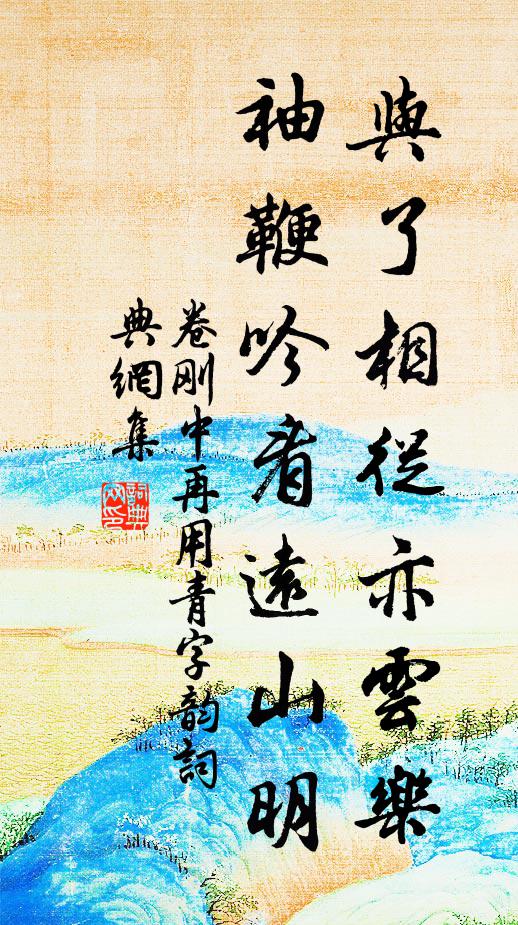 與了相從亦雲樂
袖鞭吟看遠山明
卷刚中再用青字韵詞
典網集
詞典
网印